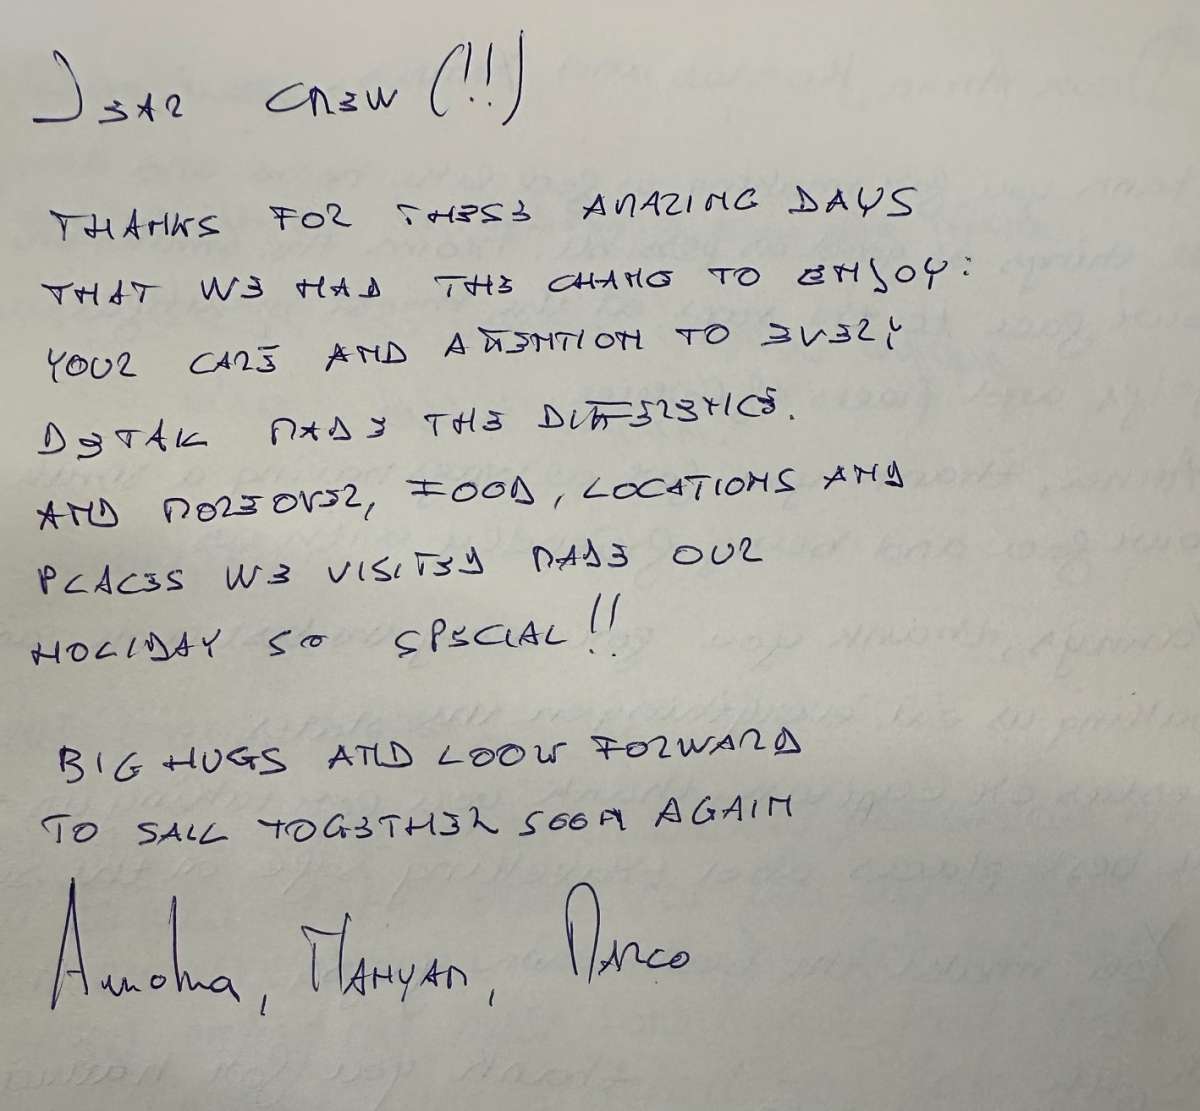 DEAR CREW (!!!)
THANKS FOR THESE AMAZING DAYS
THAT WE HAD THE CHANC TO ENJOY:
YOUR CARE AND ATTENTION TO EVERY
DETAIL MADE THE DIFFERENCE.
AND MOREOVER, FOOD, LOCATIONS AND
PLACES WE VISITED MADE OUR
HOLIDAY SO SPECIAL!!
BIG HUGS AND LOOK FORWARD
TO SAIL TOGETHER SOON AGAIN
, MARCO